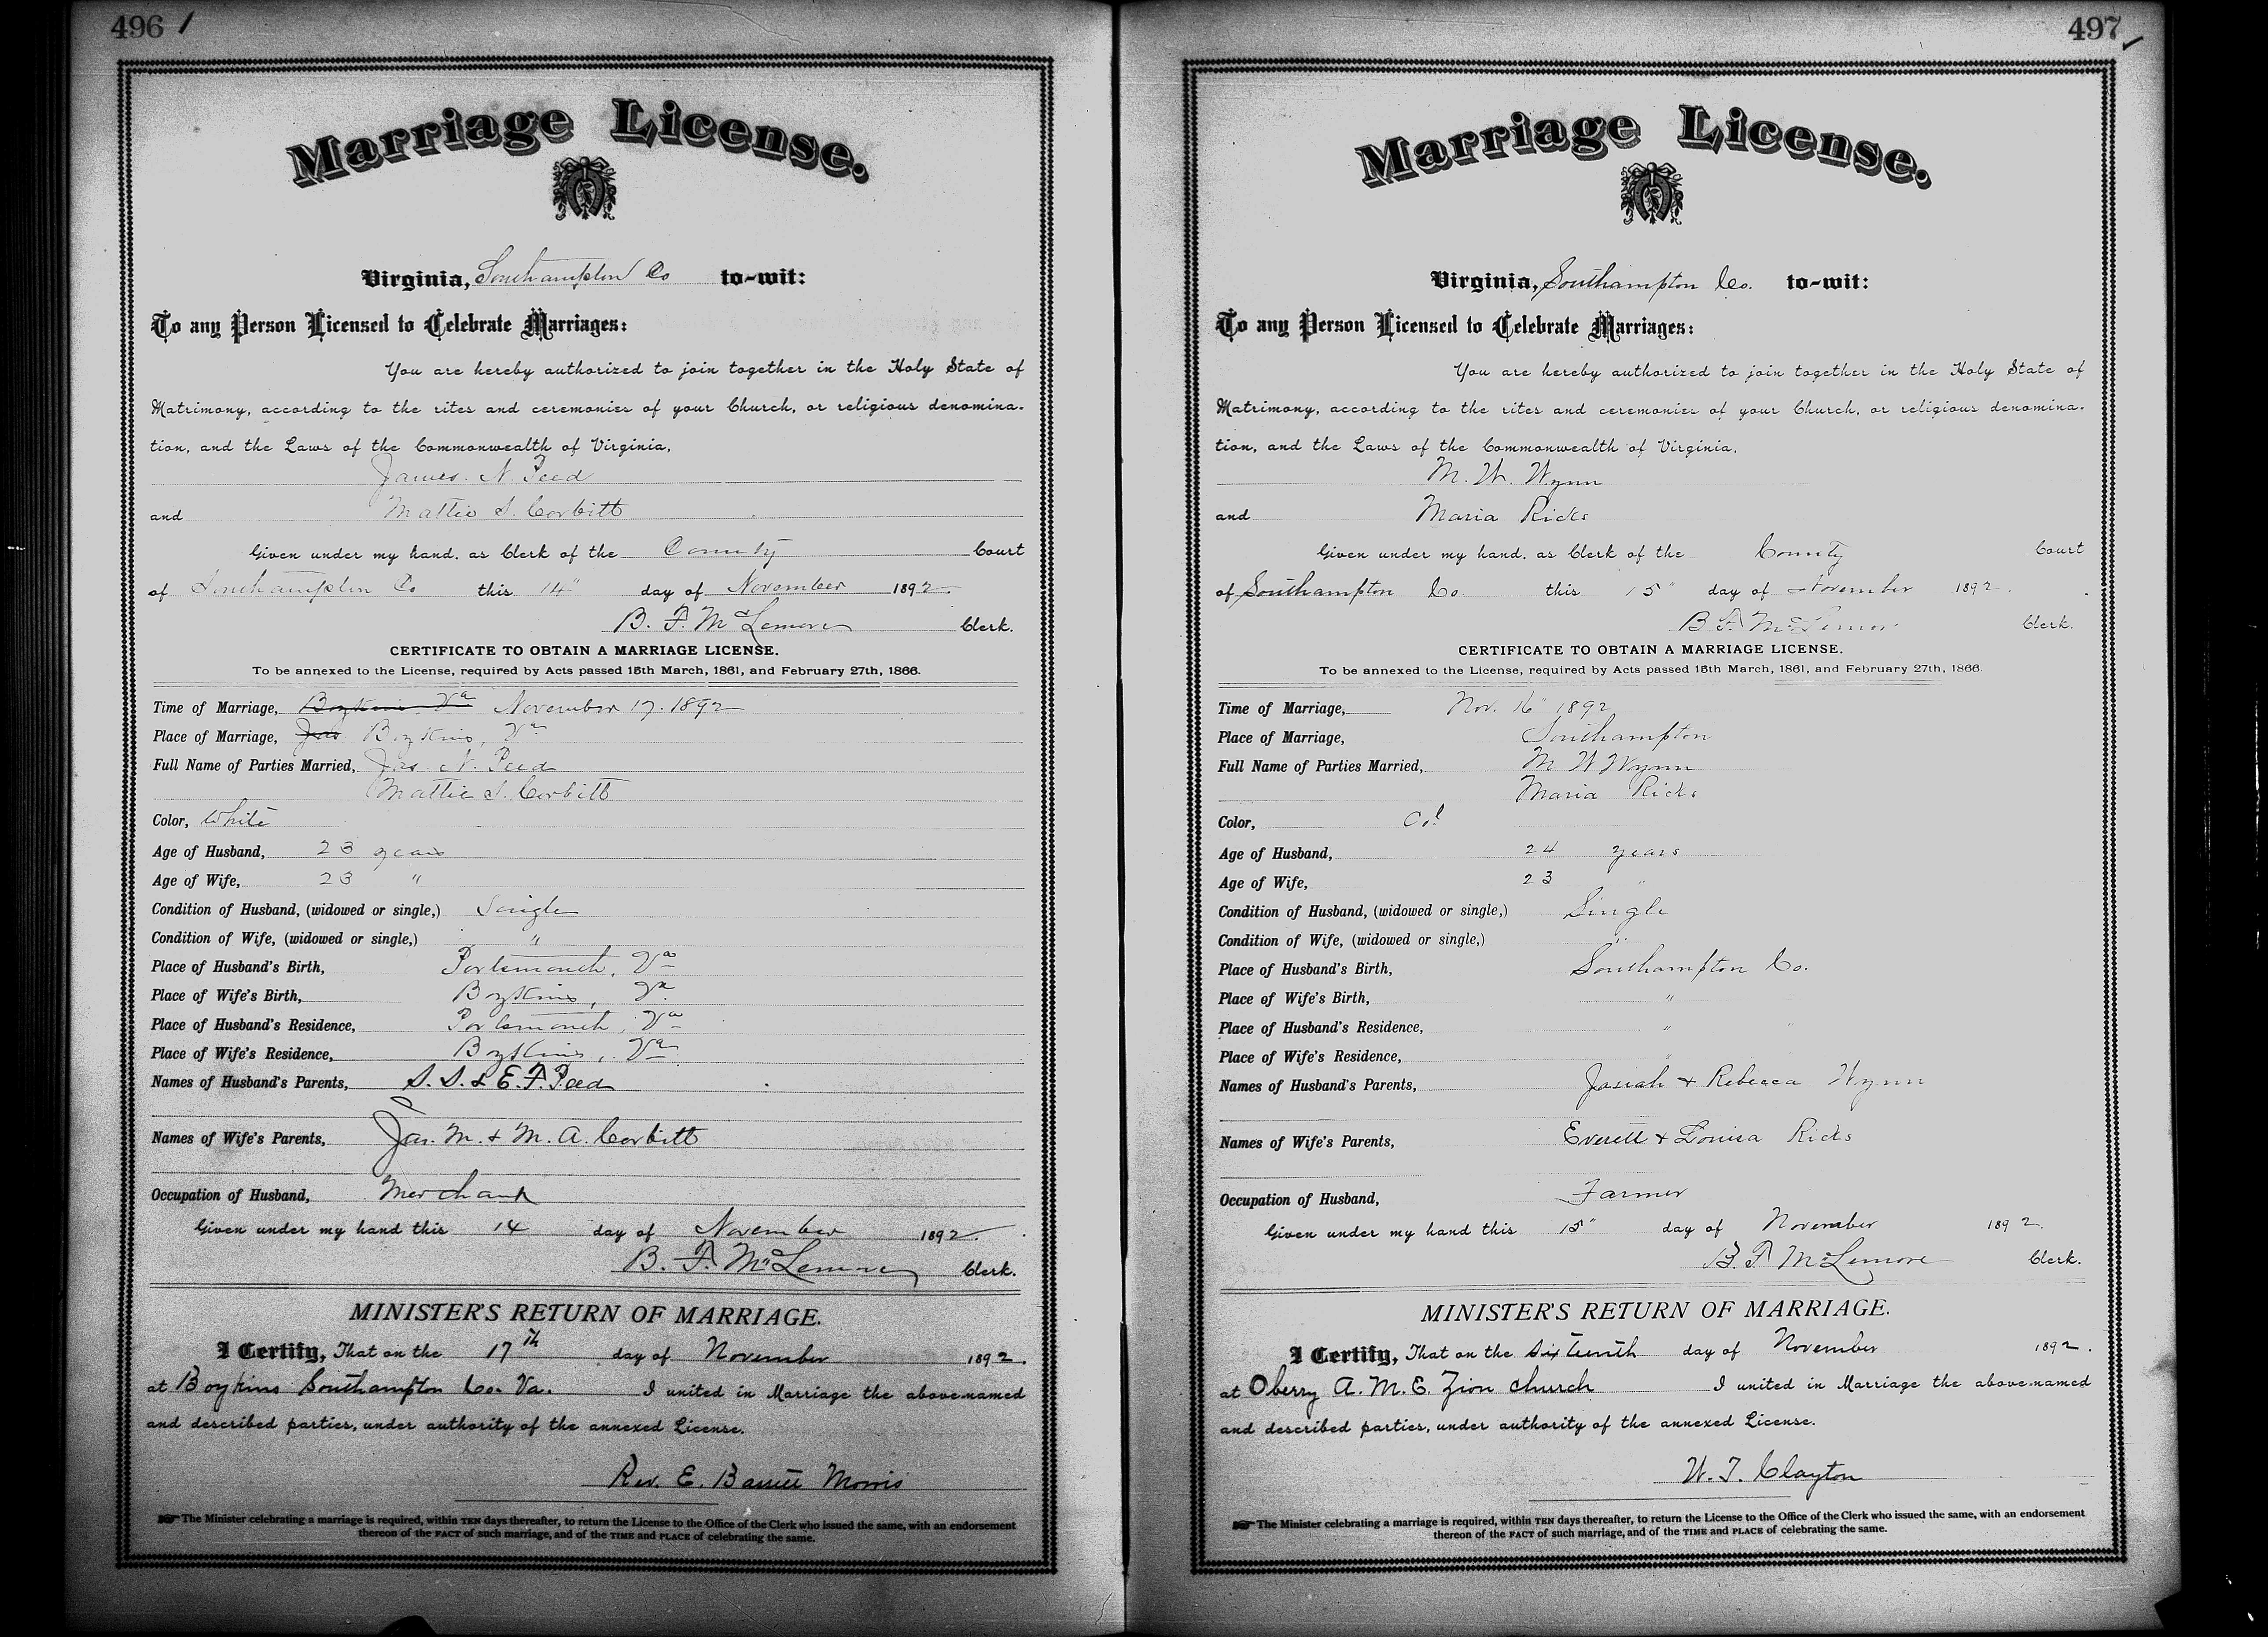 496
Marriage License.
Virginia, Southampton Co to-wit:
To any Person Licensed to Celebrate Marriages:
You are hereby authorized to join together in the Holy State of
Matrimony, according to the rites and ceremonies of your Church, or religious denomina-
tion, and the Laws of the Commonwealth of Virginia,
James. N. Peed
and Mattie S. Corbitt
Given under my hand, as Clerk of the County Court
of Southampton Co this 14" day of November 1892
B. F. McLemore Clerk.
CERTIFICATE TO OBTAIN A MARRIAGE LICENSE.
To be annexed to the License, required by Acts passed 15th March, 1861, and February 27th, 1866.
Time of Marriage, Boykins, Va November 17. 1892
Place of Marriage, Jas Boykins, Va
Full Name of Parties Married, Jas N. Peed
Mattie S. Corbitt
Color, White
Age of Husband, 23 years
Age of Wife, 23 "
Condition of Husband, (widowed or single,) Single
Condition of Wife, (widowed or single,) "
Place of Husband's Birth, Portsmouth, Va
Place of Wife's Birth, Boykins, Va
Place of Husband's Residence, Portsmouth, Va
Place of Wife's Residence, Boykins, Va
Names of Husband's Parents, S. S. & E. F. Peed
Names of Wife's Parents, Jas. M. & M. A. Corbitt
Occupation of Husband, Merchant
Given under my hand this 14 day of November 1892
B. F. McLemore Clerk.
MINISTER'S RETURN OF MARRIAGE.
I Certify, That on the 17th day of November 1892.
at Boykins Southampton Co. Va. I united in Marriage the above-named
and described parties, under authority of the annexed License.
Rev. E. Morris
The Minister celebrating a marriage is required, within TEN days thereafter, to return the License to the Office of the Clerk who issued the same, with an endorsement
thereon of the FACT of such marriage, and of the TIME and PLACE of celebrating the same.
497
Marriage License.
Virginia, Southampton Co. to-wit:
To any Person Licensed to Celebrate Marriages:
You are hereby authorized to join together in the Holy State of
Matrimony, according to the rites and ceremonies of your Church, or religious denomina-
tion, and the Laws of the Commonwealth of Virginia,
M. W. Wynn
and Maria Ricks
Given under my hand, as Clerk of the County Court
of Southampton Co. this 15" day of November 1892.
B F McLemore Clerk.
CERTIFICATE TO OBTAIN A MARRIAGE LICENSE.
To be annexed to the License, required by Acts passed 15th March, 1861, and February 27th, 1866.
Time of Marriage, Nov. 16" 1892
Place of Marriage, Southampton
Full Name of Parties Married, M W Wynn
Maria Ricks
Color, Col
Age of Husband, 24 years
Age of Wife, 23 "
Condition of Husband, (widowed or single,) Single
Condition of Wife, (widowed or single,) "
Place of Husband's Birth, Southampton Co.
Place of Wife's Birth, "
Place of Husband's Residence, " "
Place of Wife's Residence, "
Names of Husband's Parents, Josiah & Rebecca Wynn
Names of Wife's Parents, Everett & Louisa Ricks
Occupation of Husband, Farmer
Given under my hand this 15" day of November 1892.
B. F McLemore Clerk.
MINISTER'S RETURN OF MARRIAGE.
I Certify, That on the sixteenth day of November 1892.
at Oberry A. M. E. Zion church I united in Marriage the above-named
and described parties, under authority of the annexed License.
W. T. Clayton
The Minister celebrating a marriage is required, within TEN days thereafter, to return the License to the Office of the Clerk who issued the same, with an endorsement
thereon of the FACT of such marriage, and of the TIME and PLACE of celebrating the same.